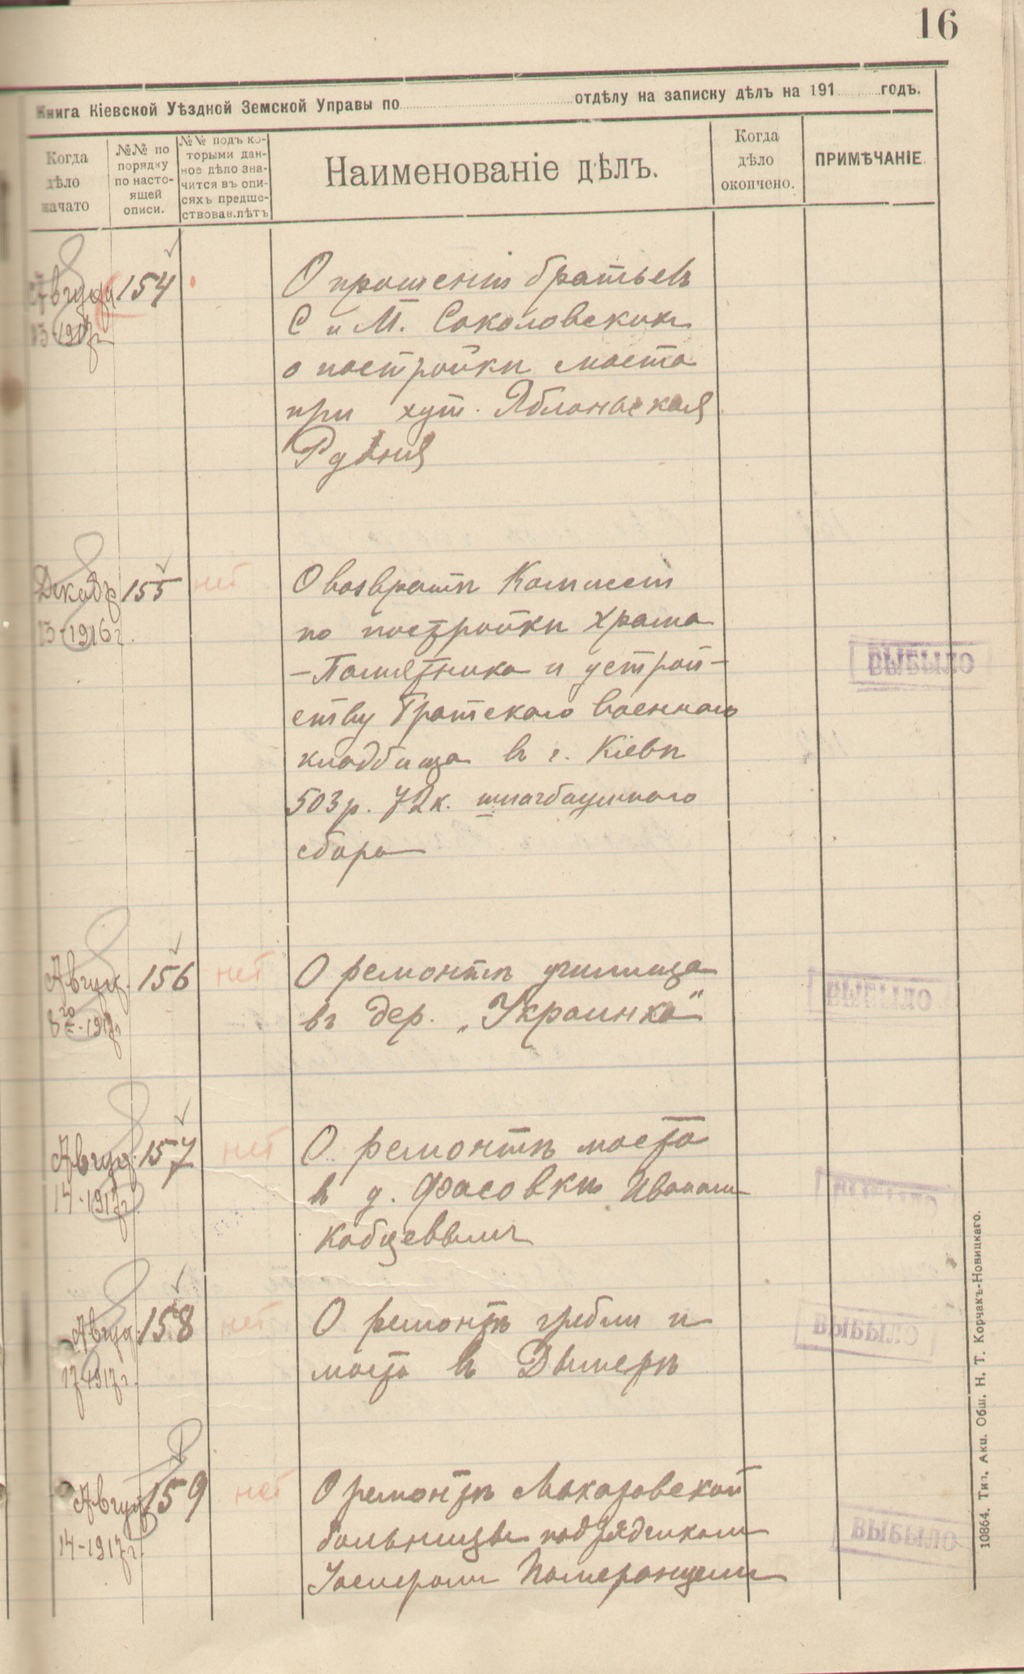 16
Книга Кіевской Уѣздной Земской Управы по отдѣлу на записку дѣлъ на 191 годъ.
Когда дѣло начато
№№ по порядку по настоящей описи.
№№ подъ ко-
торыми дан-
ное дѣло зна-
чится въ опи-
сяхъ предше-
ствовав.лѣтъ
Наименованіе дѣлъ.
Когда дѣло окончено.
ПРИМѢЧАНІЕ.
Августа 13-1917г. 154 О прошеніи братьевъ
С и М. Соколовских
о постройки моста
при хут. Яблоньская
Рудня
Декабр 13-1916г. 155 нет О возвратѣ Комитет
по постройки Храма
-Памятника и устрой-
ству Братского военного
кладбища въ г. Кіевѣ
503р. 72к. шлагбаумного
сбора
выбыло
Август. 8го-1917г 156 нет О ремонтѣ училища
въ дер. „Украинка"
выбыло
Август. 14-1917г. 157 нет О ремонтѣ моста
в д. Фасовки Иваном
Кобцевымъ
Август. 17-1917г. 158 нет О ремонтѣ гребли и
моста в Дымерѣ
выбыло
Август. 14-1917г. 159 нет О ремонтѣ Макаровской
больницы подрядчиком
Померанцем
выбыло
10864. Тип. Акц. Общ. Н. Т. Корчакъ-Новицкаго.